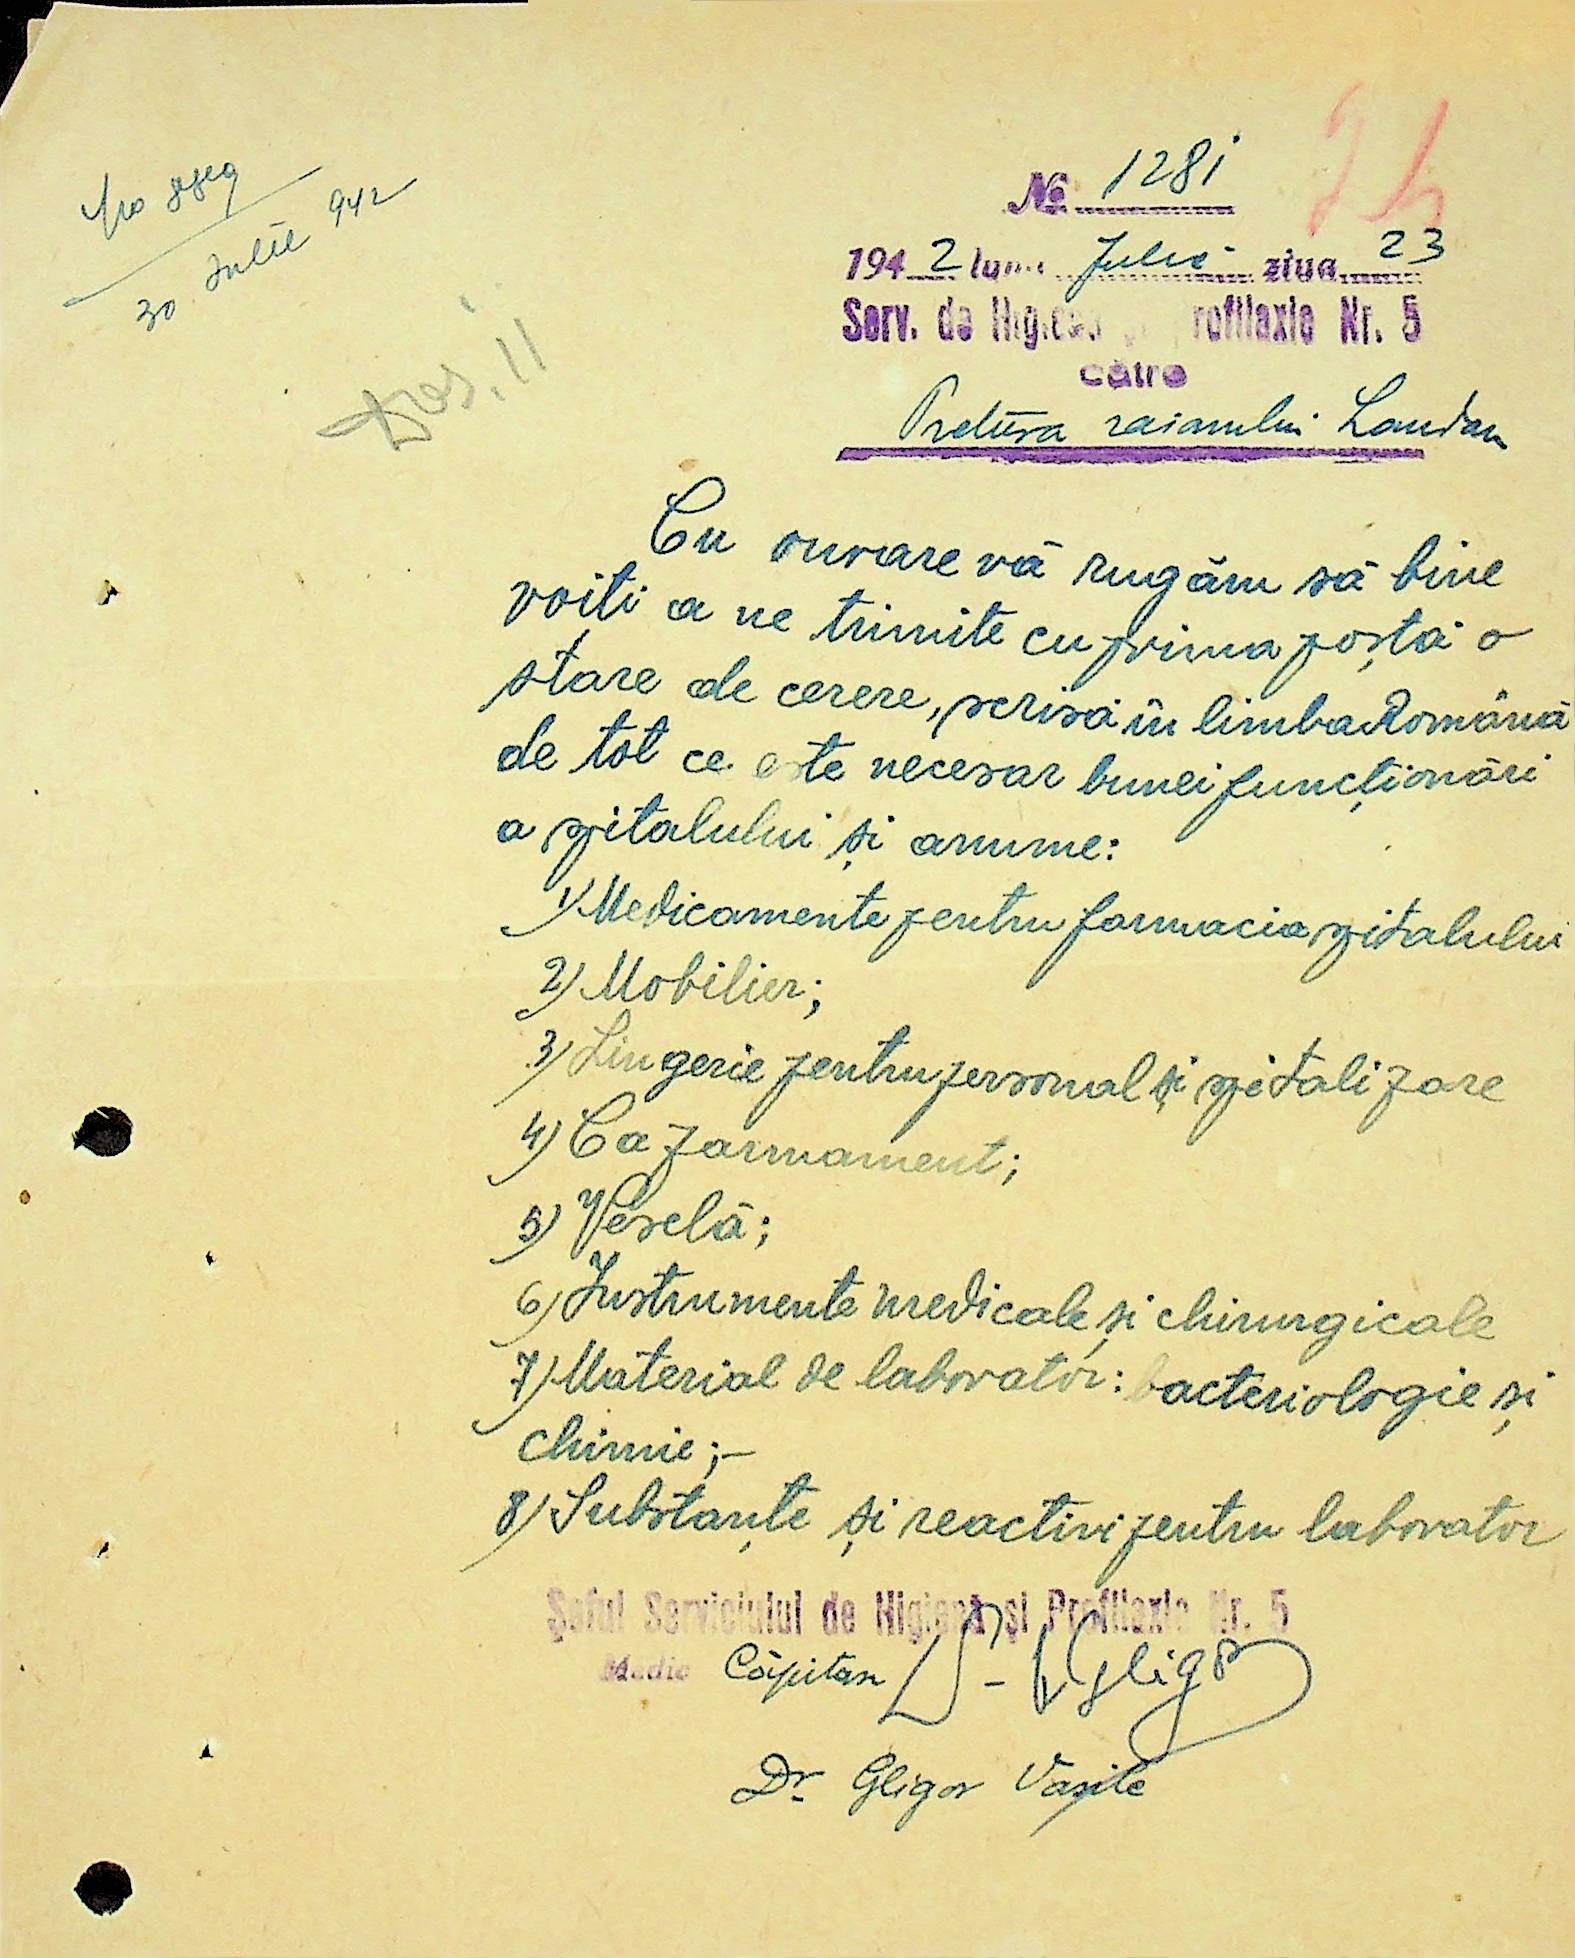 No 1281
30 Iulie 942
Dos. 11
1942 luna Iulie ziua 23
Serv. de Higienă și Profilaxie Nr. 5
către
Pretura raionului Landau
Cu onoare vă rugăm să bine
voiti a ne trimite cu prima poștă o
stare de cerere, scrisă în limba Română
de tot ce este necesar bunei funcționări
a spitalului și anume:
1) Medicamente pentru farmacia spitalului
2) Mobilier;
3) Lingerie pentru personal și spitalizare
4) Cazarmament;
5) Veselă;
6) Instrumente medicale și chirurgicale
7) Material de laborator: bacteriologie și
chimie;-
8) Substanțe și reactivi pentru laborator
Șeful Serviciului de Higienă și Profilaxie Nr. 5
Medic Căpitan
Dr. Gligor Vasile